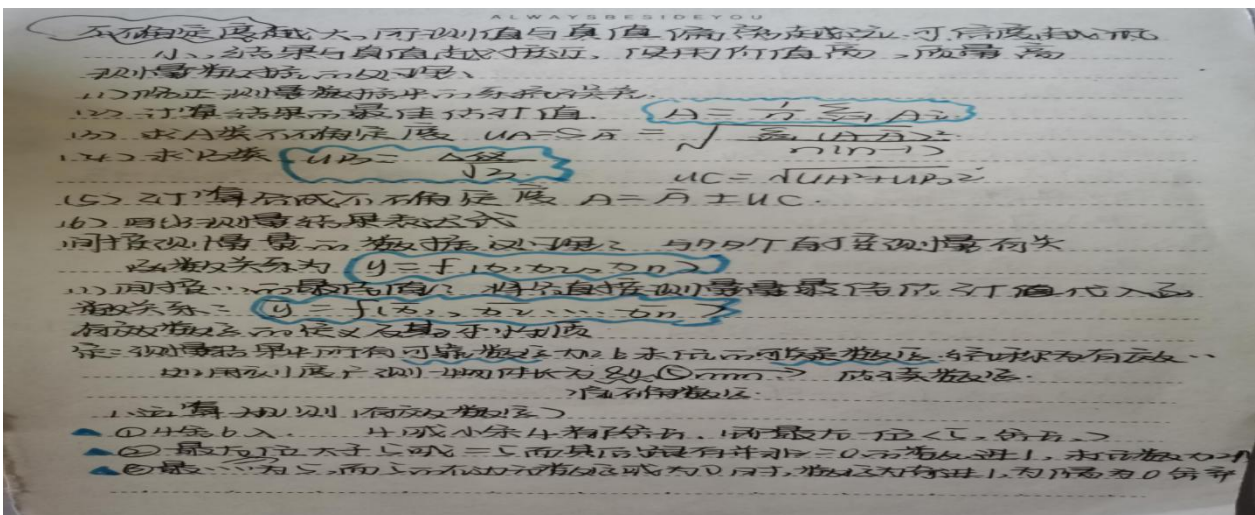 ALWAYSBESIDEYOU
不确定度越大,所测值与真值偏离越远,可信度越低
小,结果与真值越接近,使用价值高,质量高
测量数据的处理:
(1)修正测量数据中的系统误差.
(2)计算结果的最佳估计值. A = 1/n Σ Ai
(3)求A类不确定度 UA = SĀ = √ Σ(Ai-Ā)²/n(n-1)
(4)求B类 UB = Δ仪/√3 UC = √UA²+UB²
(5)计算合成不确定度 A = Ā ± UC.
(6)写出测量结果表达式
间接测量量的数据处理: 与 个直接测量有关
函数关系为 y = f(x1, x2, xn)
(1)间接…的最佳值: 将各直接测量量最佳估计值代入函
数关系: y = f(x1, x2 …… xn)
有效数字的定义及其基本性质
定:测量结果中所有可靠数字加上末位的可疑数字,统称为有效…
如:用 测 物件长为 mm → 后续数字.
→存疑数字.
1.运算规则(有效数字)
①4舍6入. 4或小于4都舍去.(即最后一位<5,舍去.)
②最后一位大于5或=5而其后跟有并非=0的数进1,
③最……为5,而5的右边无数字或为0时,数字为奇进1,为偶为0舍弃